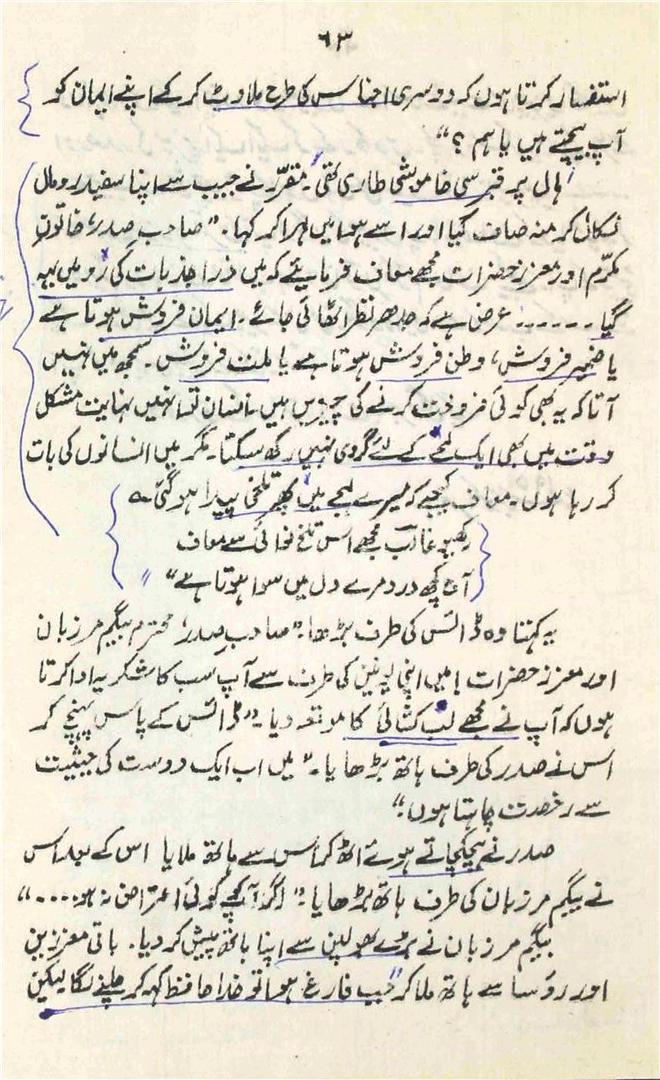 ۶۳
استفسار کرتا ہوں کہ دوسری اجناس کی طرح ملاوٹ کر کے اپنے ایمان کو
آپ بیچتے ہیں یا ہم ؟“
ہال پر قبر سی خاموشی طاری تھی۔ مقرّر نے جیب سے اپنا سفید رومال
نکال کر منہ صاف کیا اور اسے ہوا میں لہرا کر کہا۔ ”صاحبِ صدر، خاتونِ
مکرّم اور معزز حضرات مجھے معاف فرمایئے کہ میں ذرا جذبات کی رَو میں بہہ
گیا ...... عرض ہے کہ جدھر نظر اٹھائی جائے۔ ایمان فروش ہوتا ہے
یا ضمیر فروش، وطن فروش ہوتا ہے یا ملت فروش۔ سمجھ میں نہیں
آتا کہ یہ بھی کوئی فروخت کرنے کی چیزیں ہیں۔ انسان تو انہیں نہایت مشکل
وقت میں بھی ایک لمحے کے لئے گروی نہیں رکھ سکتا۔ مگر میں انسانوں کی بات
کر رہا ہوں۔ معاف کیجیے کہ میرے لہجے میں کچھ تلخی پیدا ہو گئی ؎
رکھیو غالبؔ مجھے اس تلخ نوائی سے معاف
آج کچھ درد مرے دل میں سوا ہوتا ہے“
یہ کہتا وہ ڈائس کی طرف بڑھا۔ ”صاحبِ صدر، محترم بیگم مرزبان
اور معزز حضرات! میں اپنی یونین کی طرف سے آپ سب کا شکریہ ادا کرتا
ہوں کہ آپ نے مجھے لب کشائی کا موقعہ دیا۔“ ڈائس کے پاس پہنچ کر
اس نے صدر کی طرف ہاتھ بڑھایا۔ ”میں اب ایک دوست کی حیثیت
سے رخصت چاہتا ہوں۔“
صدر نے ہچکچاتے ہوئے اٹھ کر اُس سے ہاتھ ملایا اس کے بعد اس
نے بیگم مرزبان کی طرف ہاتھ بڑھایا۔ ”اگر آپکو کوئی اعتراض نہ ہو....“
بیگم مرزبان نے بڑے بھولپن سے اپنا ہاتھ پیش کر دیا۔ باقی معززین
اور روسا سے ہاتھ ملا کر جب فارغ ہوا تو خدا حافظ کہہ کر چلنے لگا لیکن